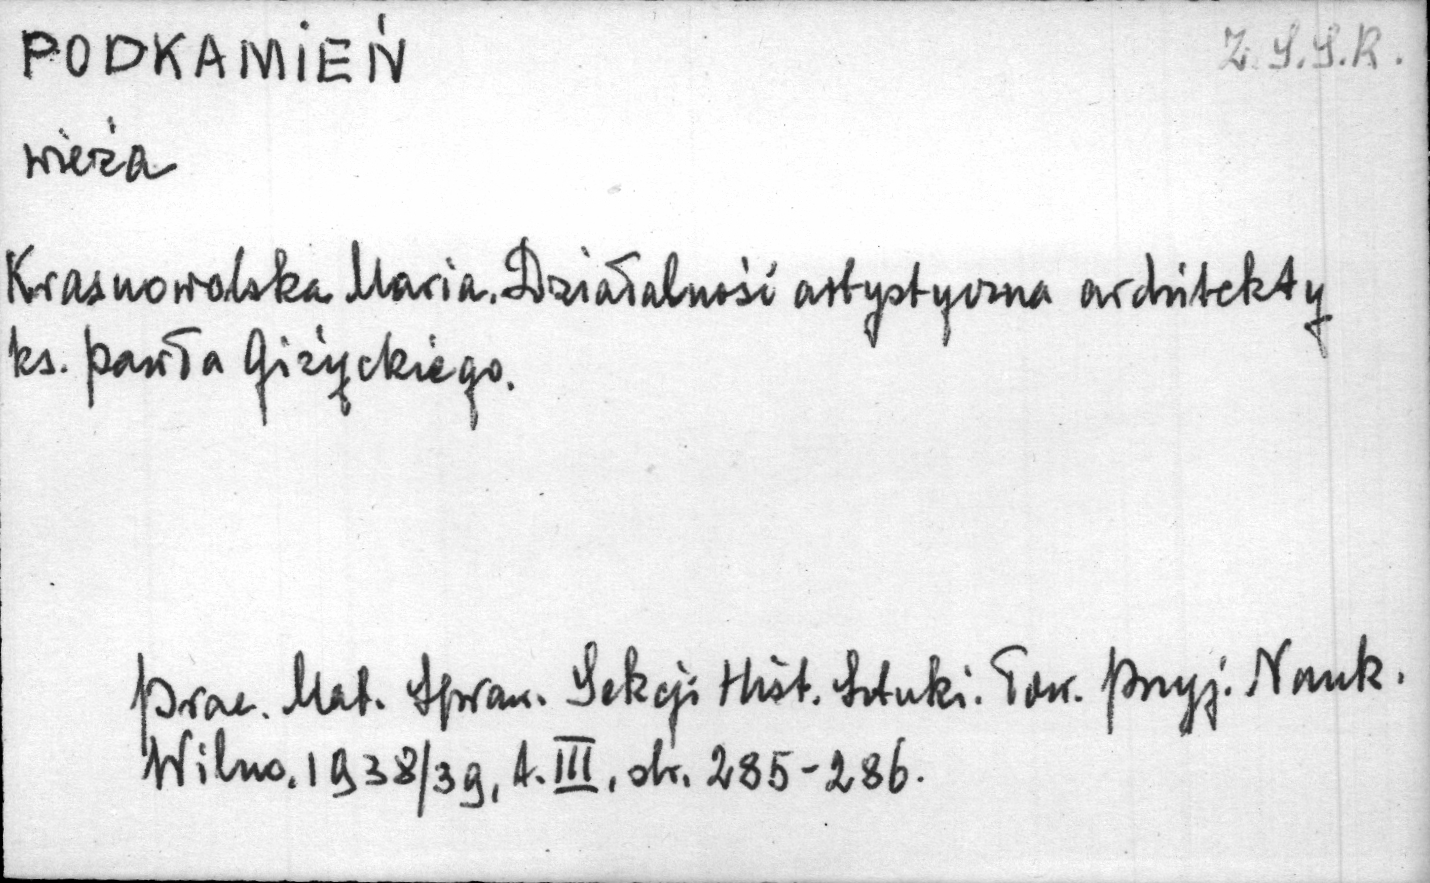 PODKAMIEŃ
Z.S.S.R.
wieża
Krasnowolska Maria. Działalność artystyczna architekty
ks. Pawła Giżyckiego.
Prac. Mat. Spraw. Sekcji Hist. Sztuki. Tow. Przyj. Nauk.
Wilno. 1938/39, t. III, str. 285-286.